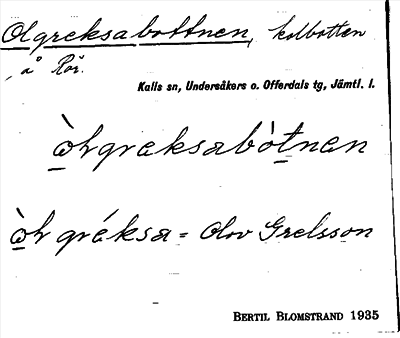 Olgreksabottnen, kolbotten
å Rör.
Kalls sn, Undersåkers o. Offerdals tg, Jämtl. l.
òlgreksabòtnen
òl gréksa = Olov Grelsson
BERTIL BLOMSTRAND 1935